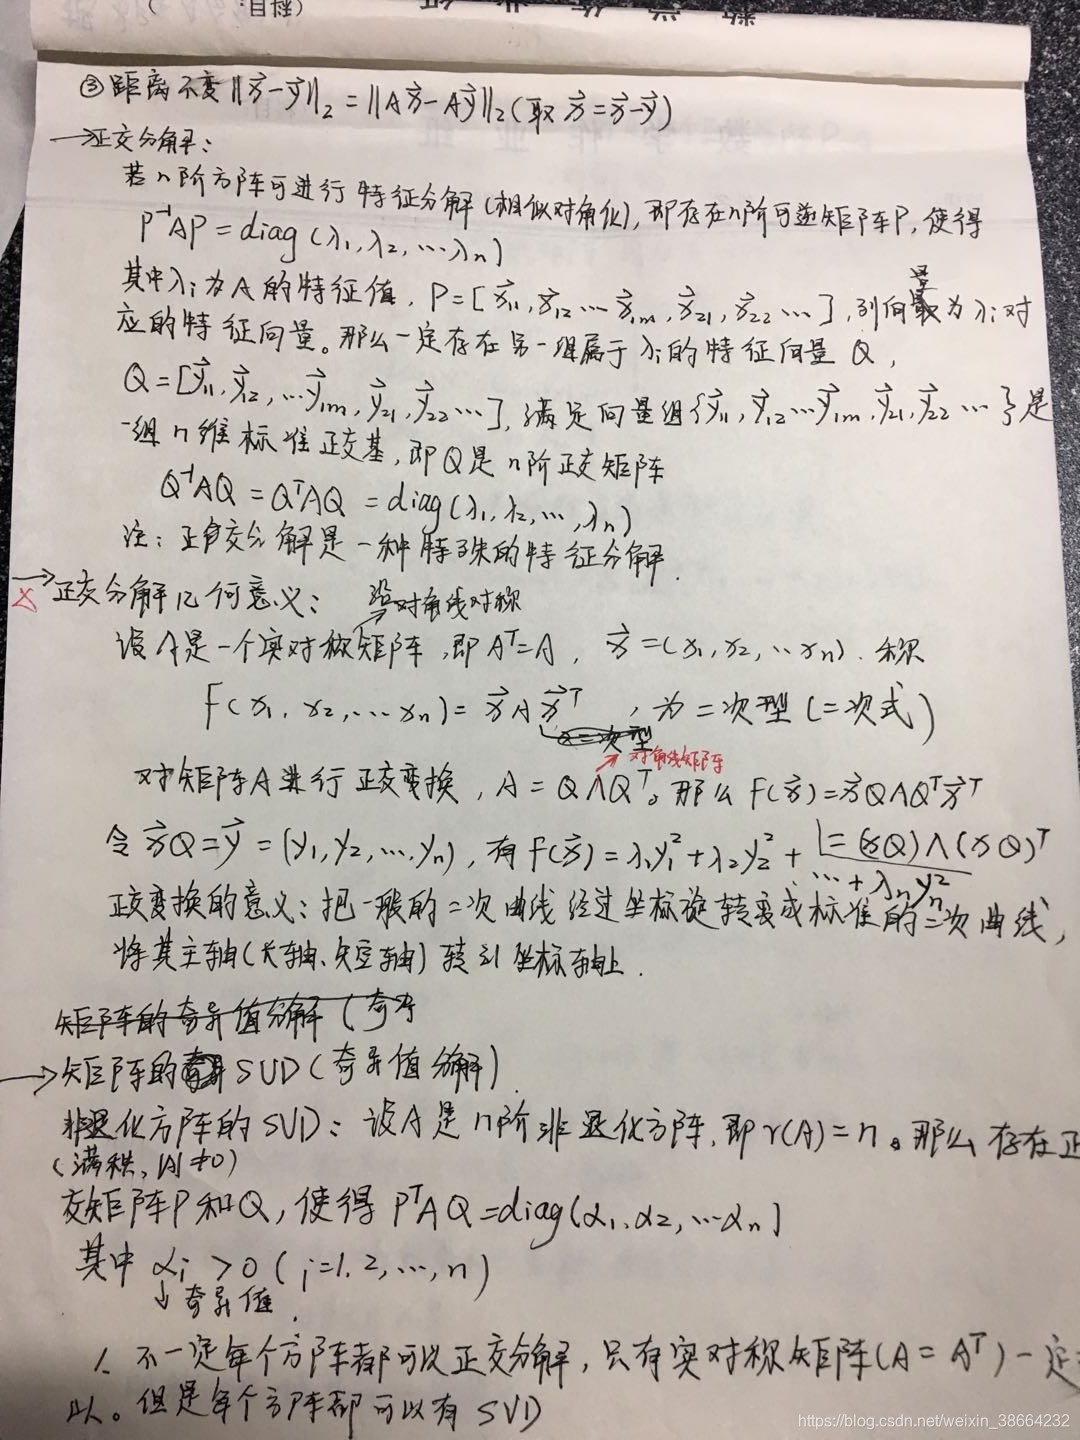 ③距离不变 ||x⃗-y⃗||₂ = ||Ax⃗-Ay⃗||₂ (取 x⃗=x⃗-y⃗)
→正交分解:
若n阶方阵可进行特征分解(相似对角化),即存在n阶可逆矩阵P,使得
P⁻¹AP = diag(λ₁,λ₂,…λₙ)
其中λᵢ为A的特征值, P=[x⃗₁₁,x⃗₁₂…x⃗₁ₘ,x⃗₂₁,x⃗₂₂…],列向量为λᵢ对
应的特征向量。那么一定存在另一组属于λᵢ的特征向量Q,
Q=[y⃗₁₁,y⃗₁₂,…y⃗₁ₘ,y⃗₂₁,y⃗₂₂…],满足向量组{y⃗₁₁,y⃗₁₂…y⃗₁ₘ,y⃗₂₁,y⃗₂₂…}是
一组n维标准正交基,即Q是n阶正交矩阵
Q⁻¹AQ = QᵀAQ = diag(λ₁,λ₂,…,λₙ)
注:正交分解是一种特殊的特征分解.
→正交分解几何意义: 沿对角线对称
设A是一个实对称矩阵,即Aᵀ=A, x⃗=(x₁,x₂,…xₙ).称
F(x₁,x₂,…xₙ)=x⃗Ax⃗ᵀ,为二次型(二次式)
二次型
对角线矩阵
对矩阵A进行正交变换,A=QΛQᵀ。那么F(x⃗)=x⃗QΛQᵀx⃗ᵀ
=(xQ)Λ(xQ)ᵀ
令x⃗Q=y⃗=(y₁,y₂,…,yₙ),有F(x⃗)=λ₁y₁²+λ₂y₂²+…+λₙyₙ²
正交变换的意义:把一般的二次曲线经过坐标旋转变成标准的二次曲线,
将其主轴(长轴、短轴)转到坐标轴上.
矩阵的奇异值分解(奇异
→矩阵的SVD(奇异值分解)
非退化方阵的SVD:设A是n阶非退化方阵,即r(A)=n。那么存在正
(满秩,|A|≠0)
交矩阵P和Q,使得PᵀAQ=diag(α₁,α₂,…αₙ)
其中αᵢ>0(i=1,2,…,n)
↓奇异值
1、不一定每个方阵都可以正交分解,只有实对称矩阵(A=Aᵀ)一定
以。但是每个方阵都可以有SVD
https://blog.csdn.net/weixin_38664232